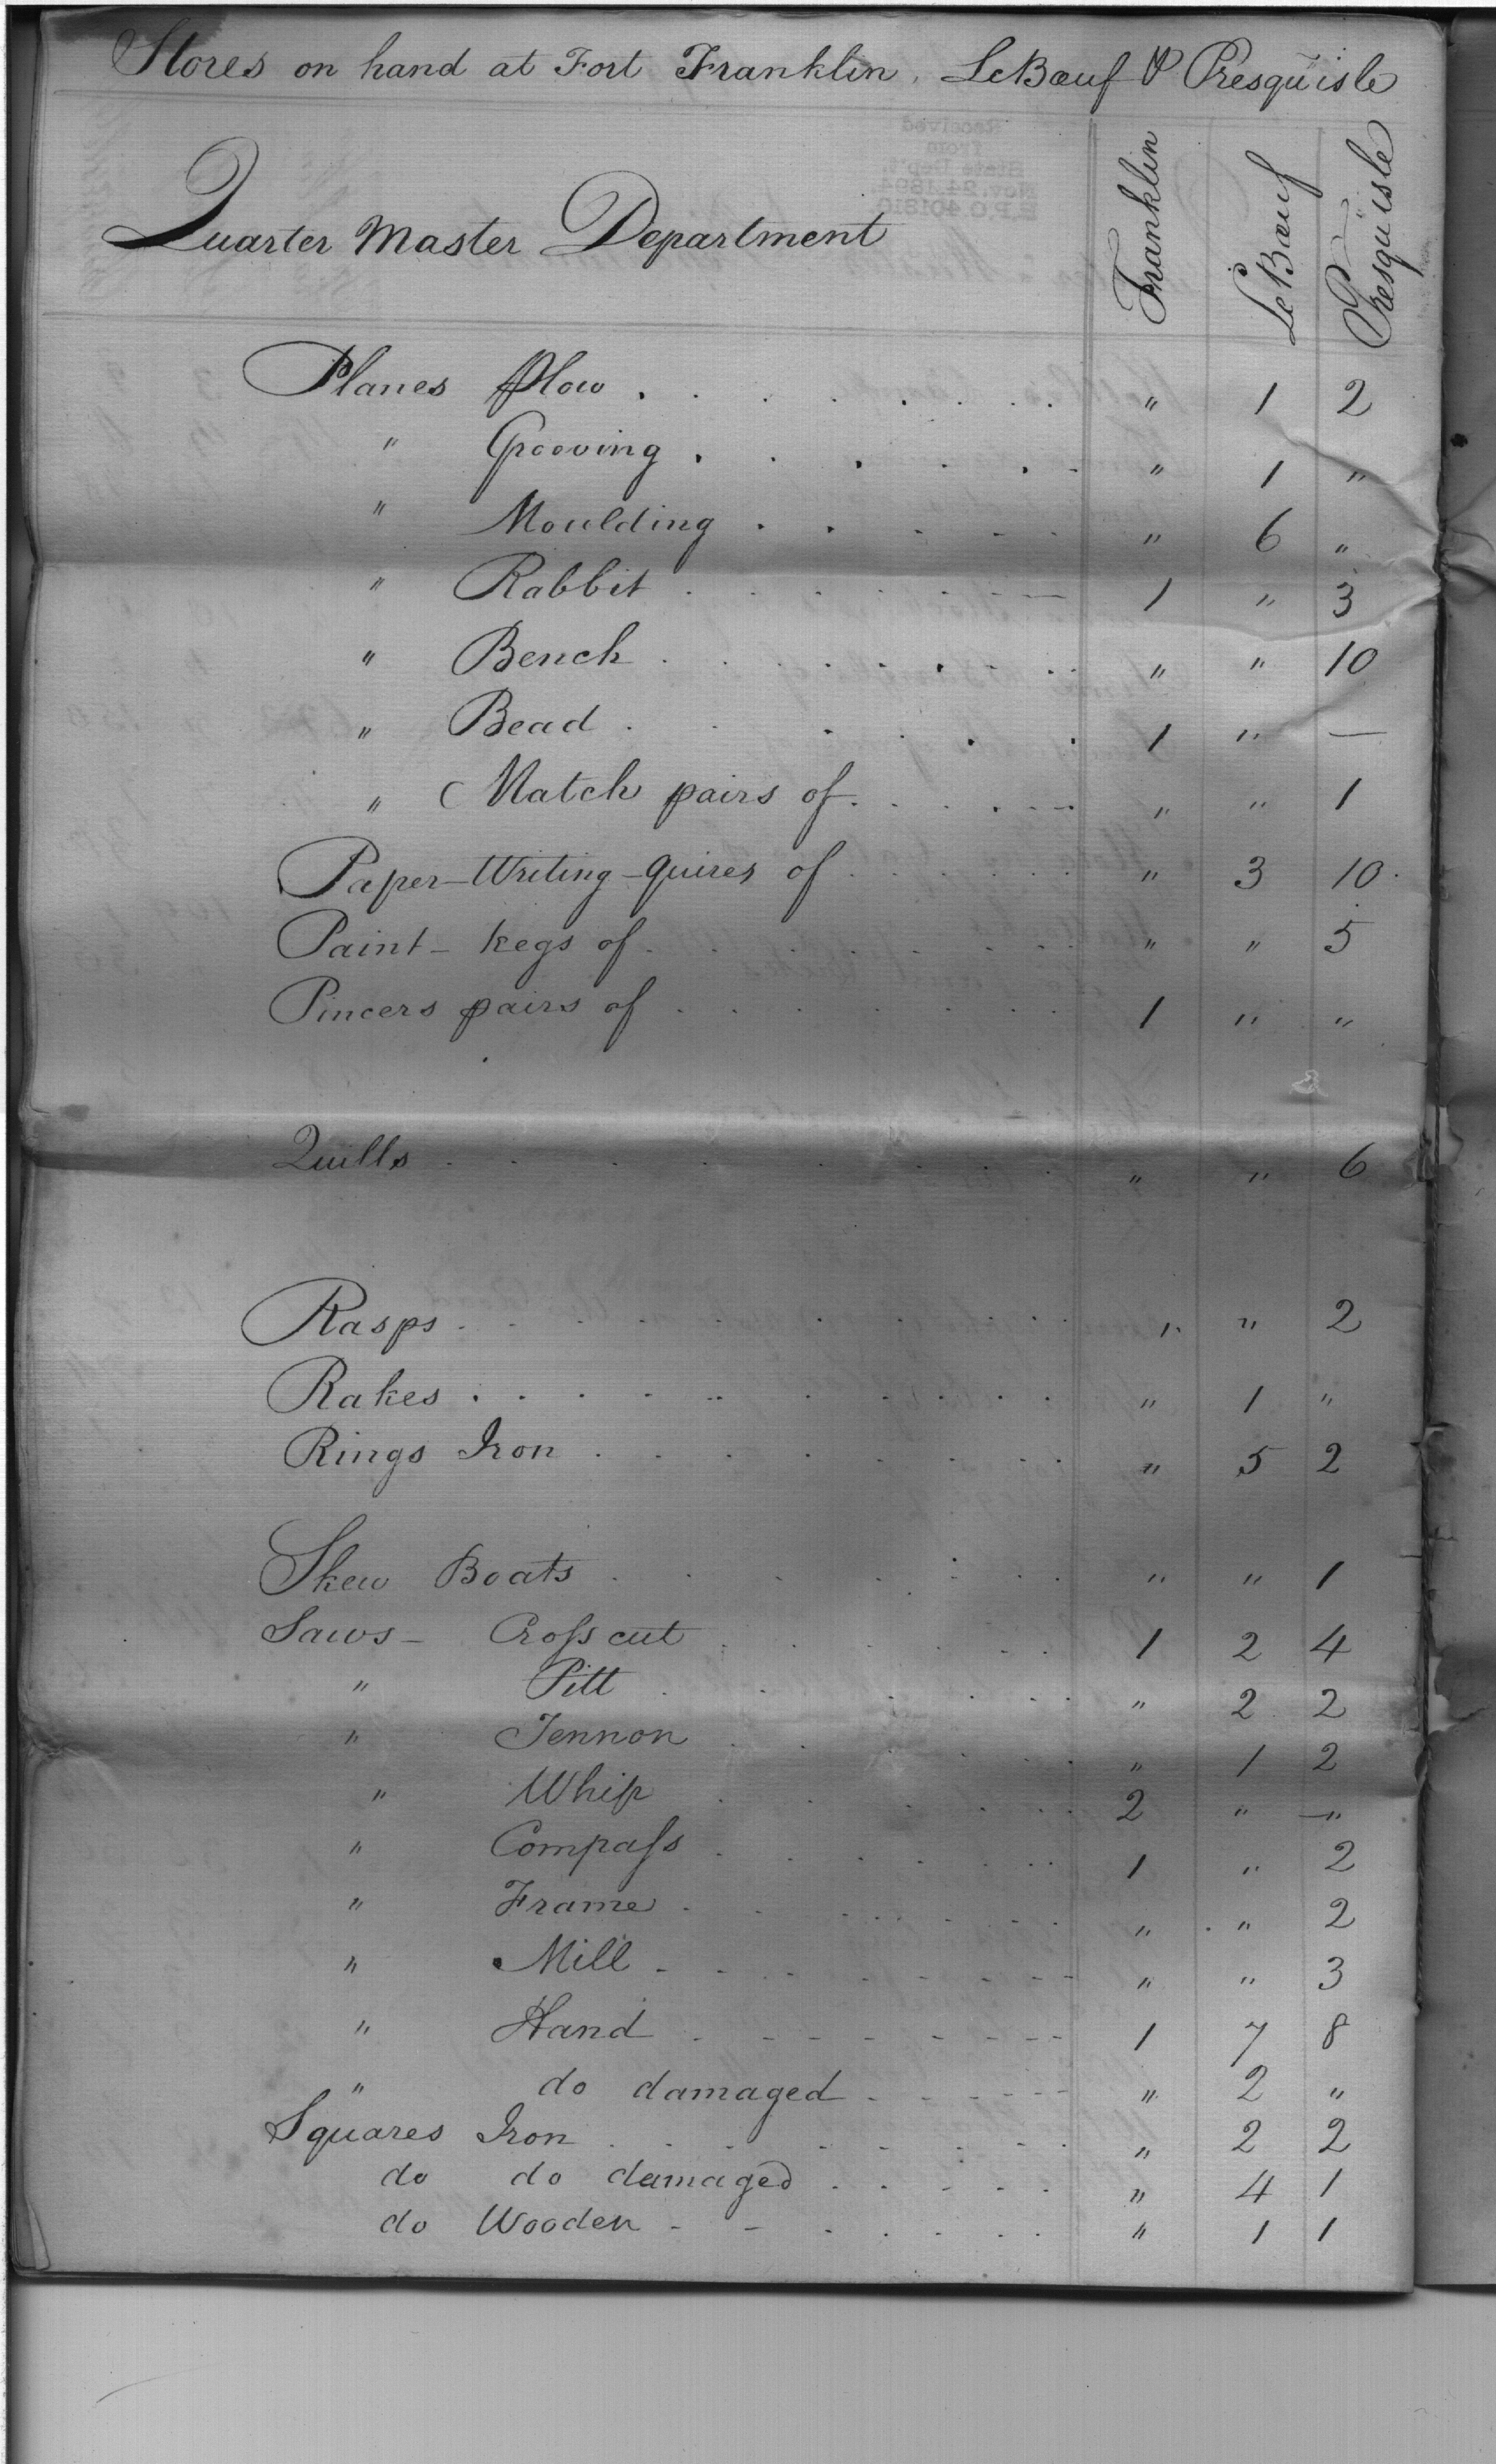 Stores on hand at Fort Franklin. LeBœuf & Presqu'isle
Quarter Master Department Franklin LeBœuf Presqu'isle
Planes plow . . . . . . . . " 1 2
" Grooving . . . . . . " 1 "
" Moulding . . . . . " 6 "
" Rabbit . . . . . . . 1 " 3
" Bench . . . . . . . . " " 10
" Bead . . . . . . 1 " —
" Match pairs of . . . . . " " 1
Paper-Writing-quires of . . . . . . " 3 10
Paint- kegs of . . . . . . . . " " 5
Pincers pairs of . . . . . . . 1 " "
Quills . . . . . . . . . " " 6
Rasps . . . . . . . . . . " " 2
Rakes . . . . . . . . . . " 1 "
Rings Iron . . . . . . . . " 5 2
Skew Boats . . . . . . . . " " 1
Saws- Cross cut . . . . . . 1 2 4
" Pitt . . . . . . " 2 2
" Tennon . . . . . . " 1 2
" Whip . . . . . . 2 " — "
" Compass . . . . . . . 1 " 2
" Frame . . . . . . . " " 2
" Mill - - - - - - - - " " 3
" Hand - - - - - - - - 1 7 8
" do damaged - - - - - - " 2 "
Squares Iron . . . . . . . . " 2 2
do do damaged . . . . . " 4 1
do Wooden - - . . . . . " 1 1
Received
from
State Dep't.
Nov. 24, 1894.